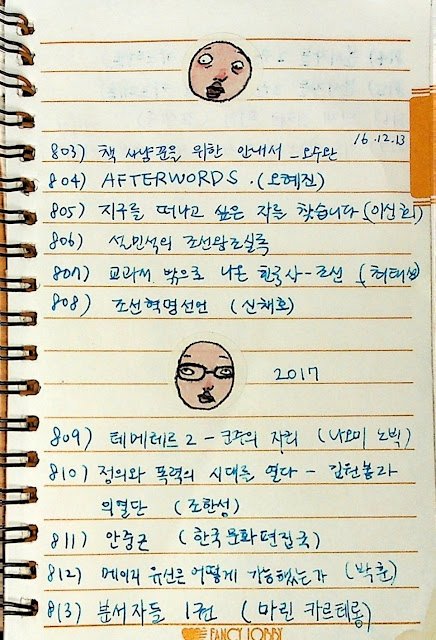 16.12.13
803) 책 사냥꾼을 위한 안내서 - 오수완
804) AFTERWORDS. (오혜진)
805) 지구를 떠나고 싶은 자를 찾습니다 (이신희)
806) 설민석의 조선왕조실록
807) 교과서 밖으로 나온 한국사-조선 (최태성)
808) 조선혁명선언 (신채호)
2017
809) 테메레르 2 - 군주의 자리 (나오미 노빅)
810) 정의와 폭력의 시대를 열다 - 김원봉과
의열단 (조한성)
811) 안중근 (한국문화편집국)
812) 메이지 유신은 어떻게 가능했는가 (박훈)
813) 분서자들 1권 (마린 카르테롱)
FANCY LOBBY